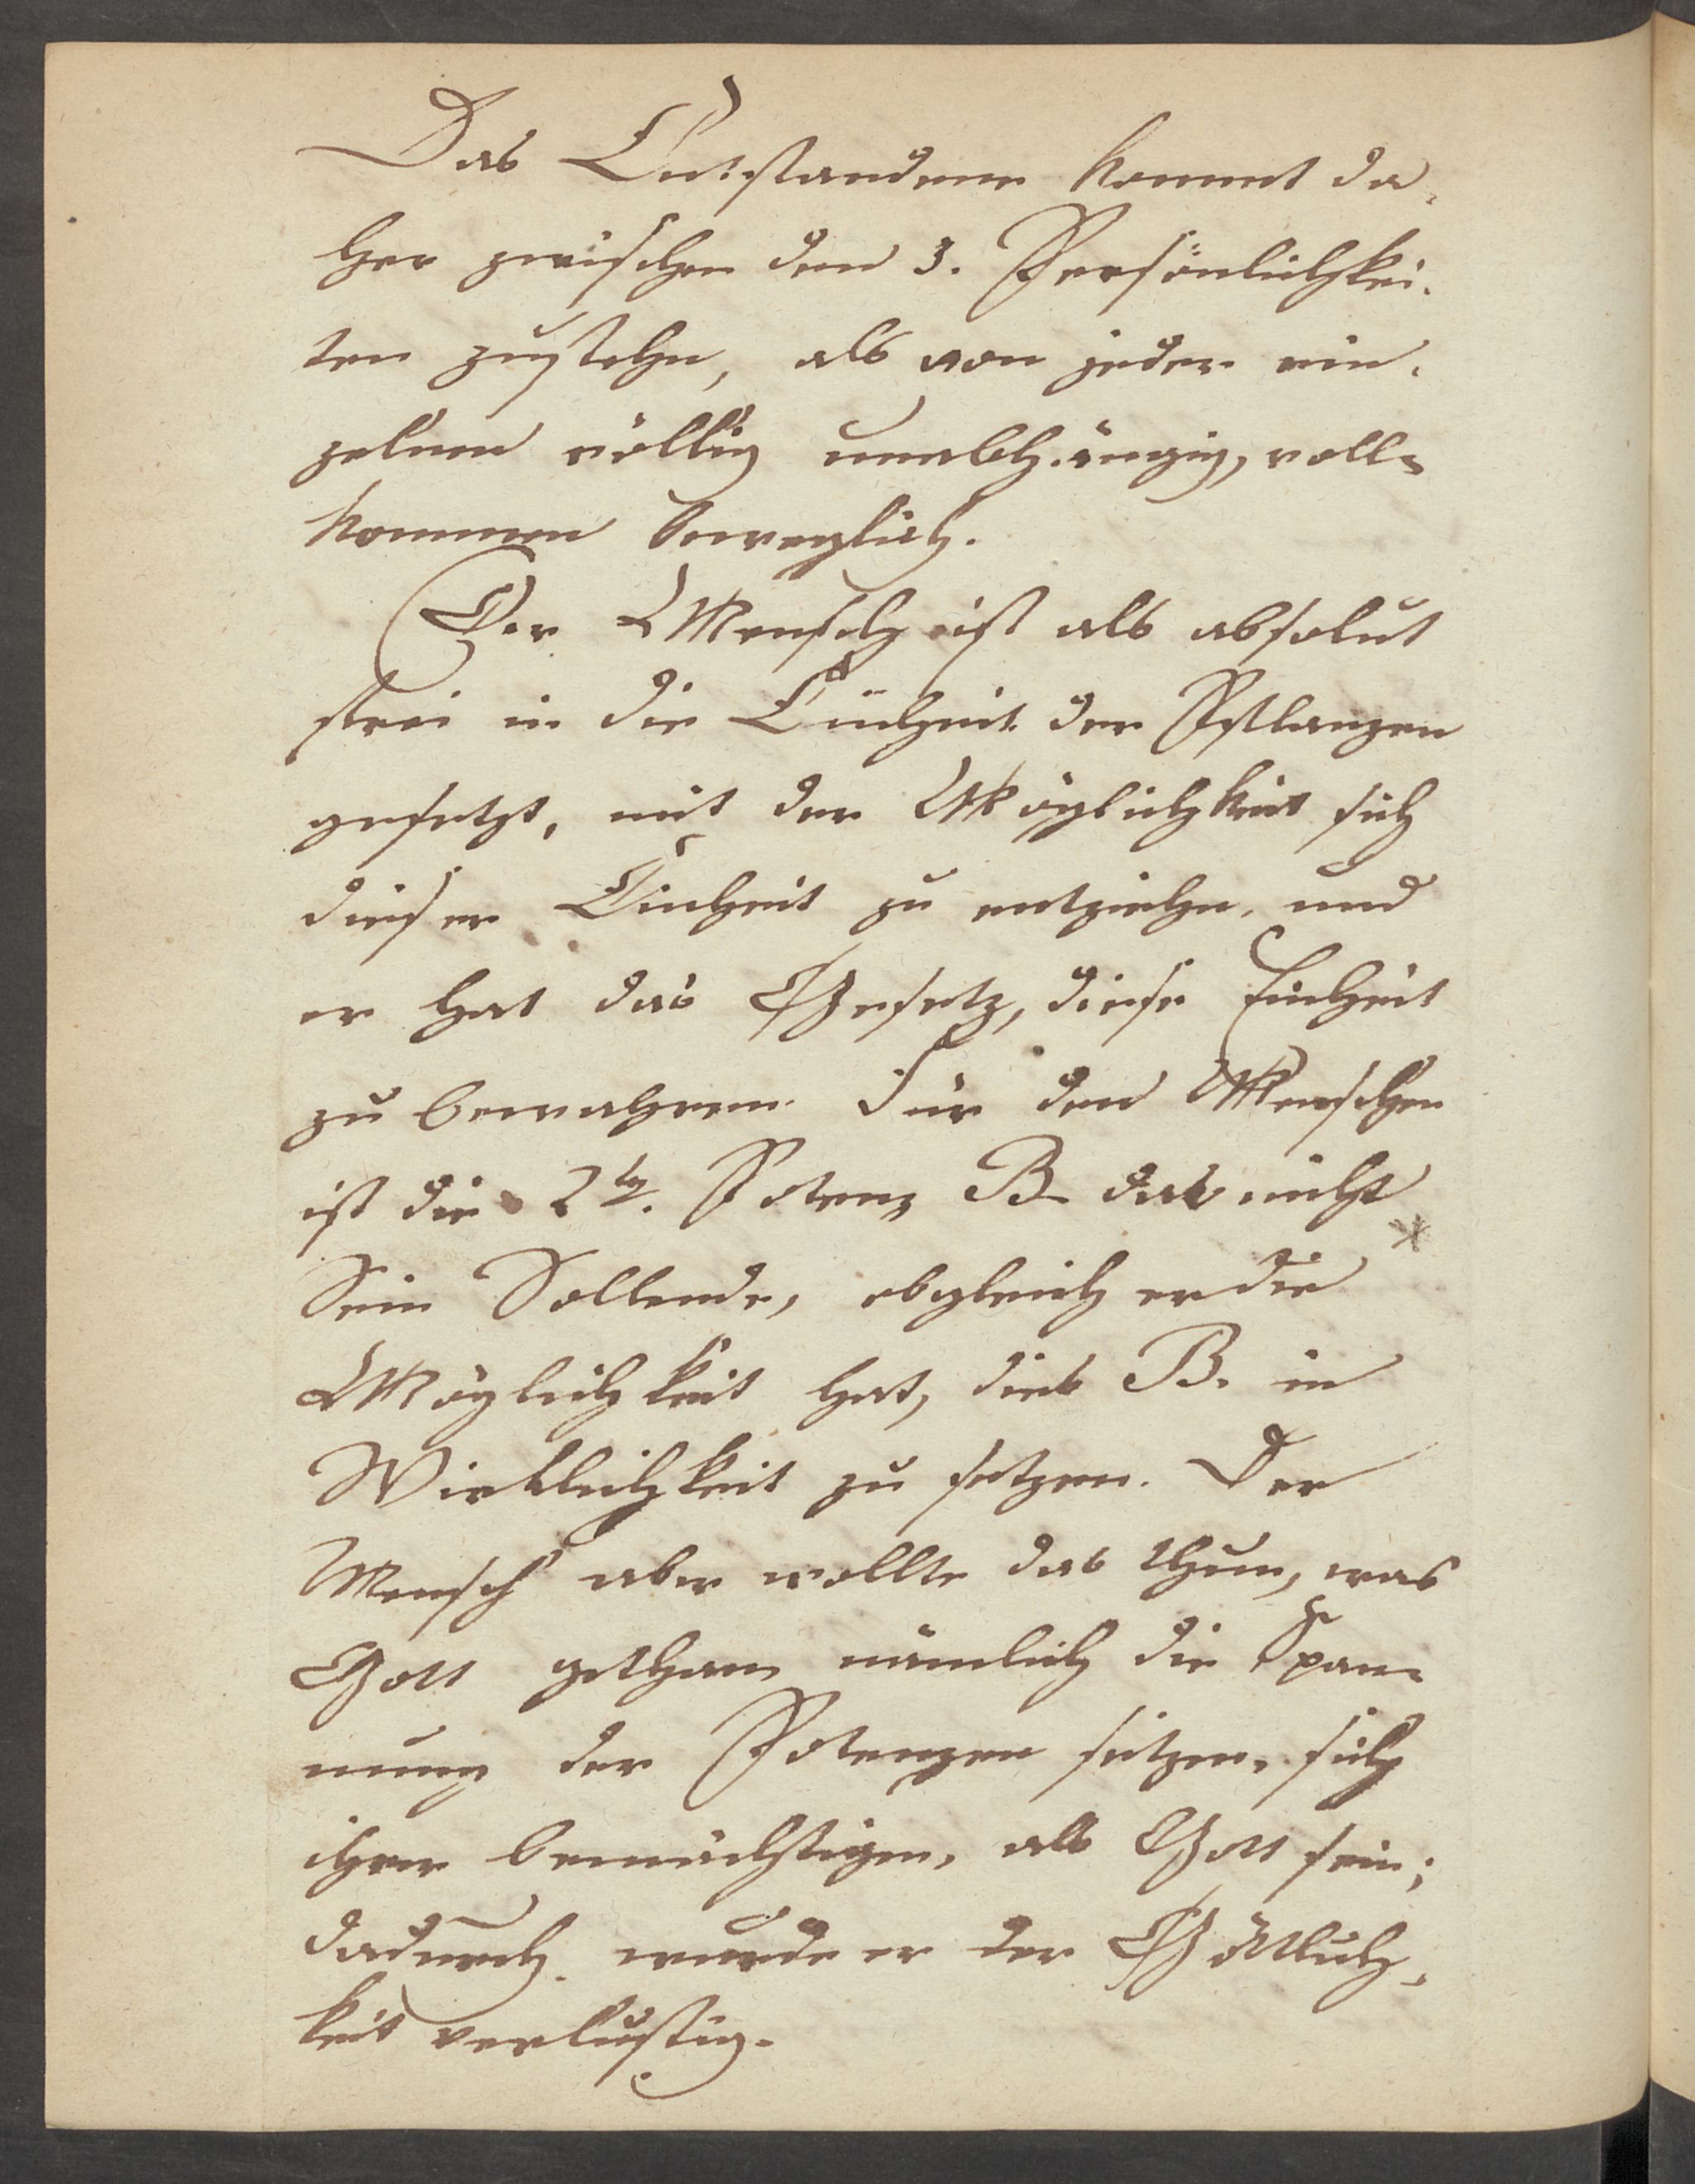 Das Entstandene kommt da-
her zwischen den 3. Persönlichkei-
ten zustehn, als von jeder ein-
zelnen völlig unabhängig, voll-
kommen beweglich.
Der Mensch ist als absolut
frei in die Einheit der Pflanzen
gesetzt, mit der Möglichkeit sich
dieser Einheit zu entziehn, und
er hat das Gesetz, diese Einheit
zu bewahren. Für den Menschen
ist die 2te. Potenz B das nicht
Sein Sollende, obgleich er die *
Möglichkeit hat, dies B. in
Wirklichkeit zu setzen. Der
Mensch aber wollte das thun, was
Gott gethan, nämlich die Span-
nung der Potenzen setzen, sich
ihrer bemächtigen, als Gott sein;
dadurch wurde er der Göttlich-
keit verlustig.